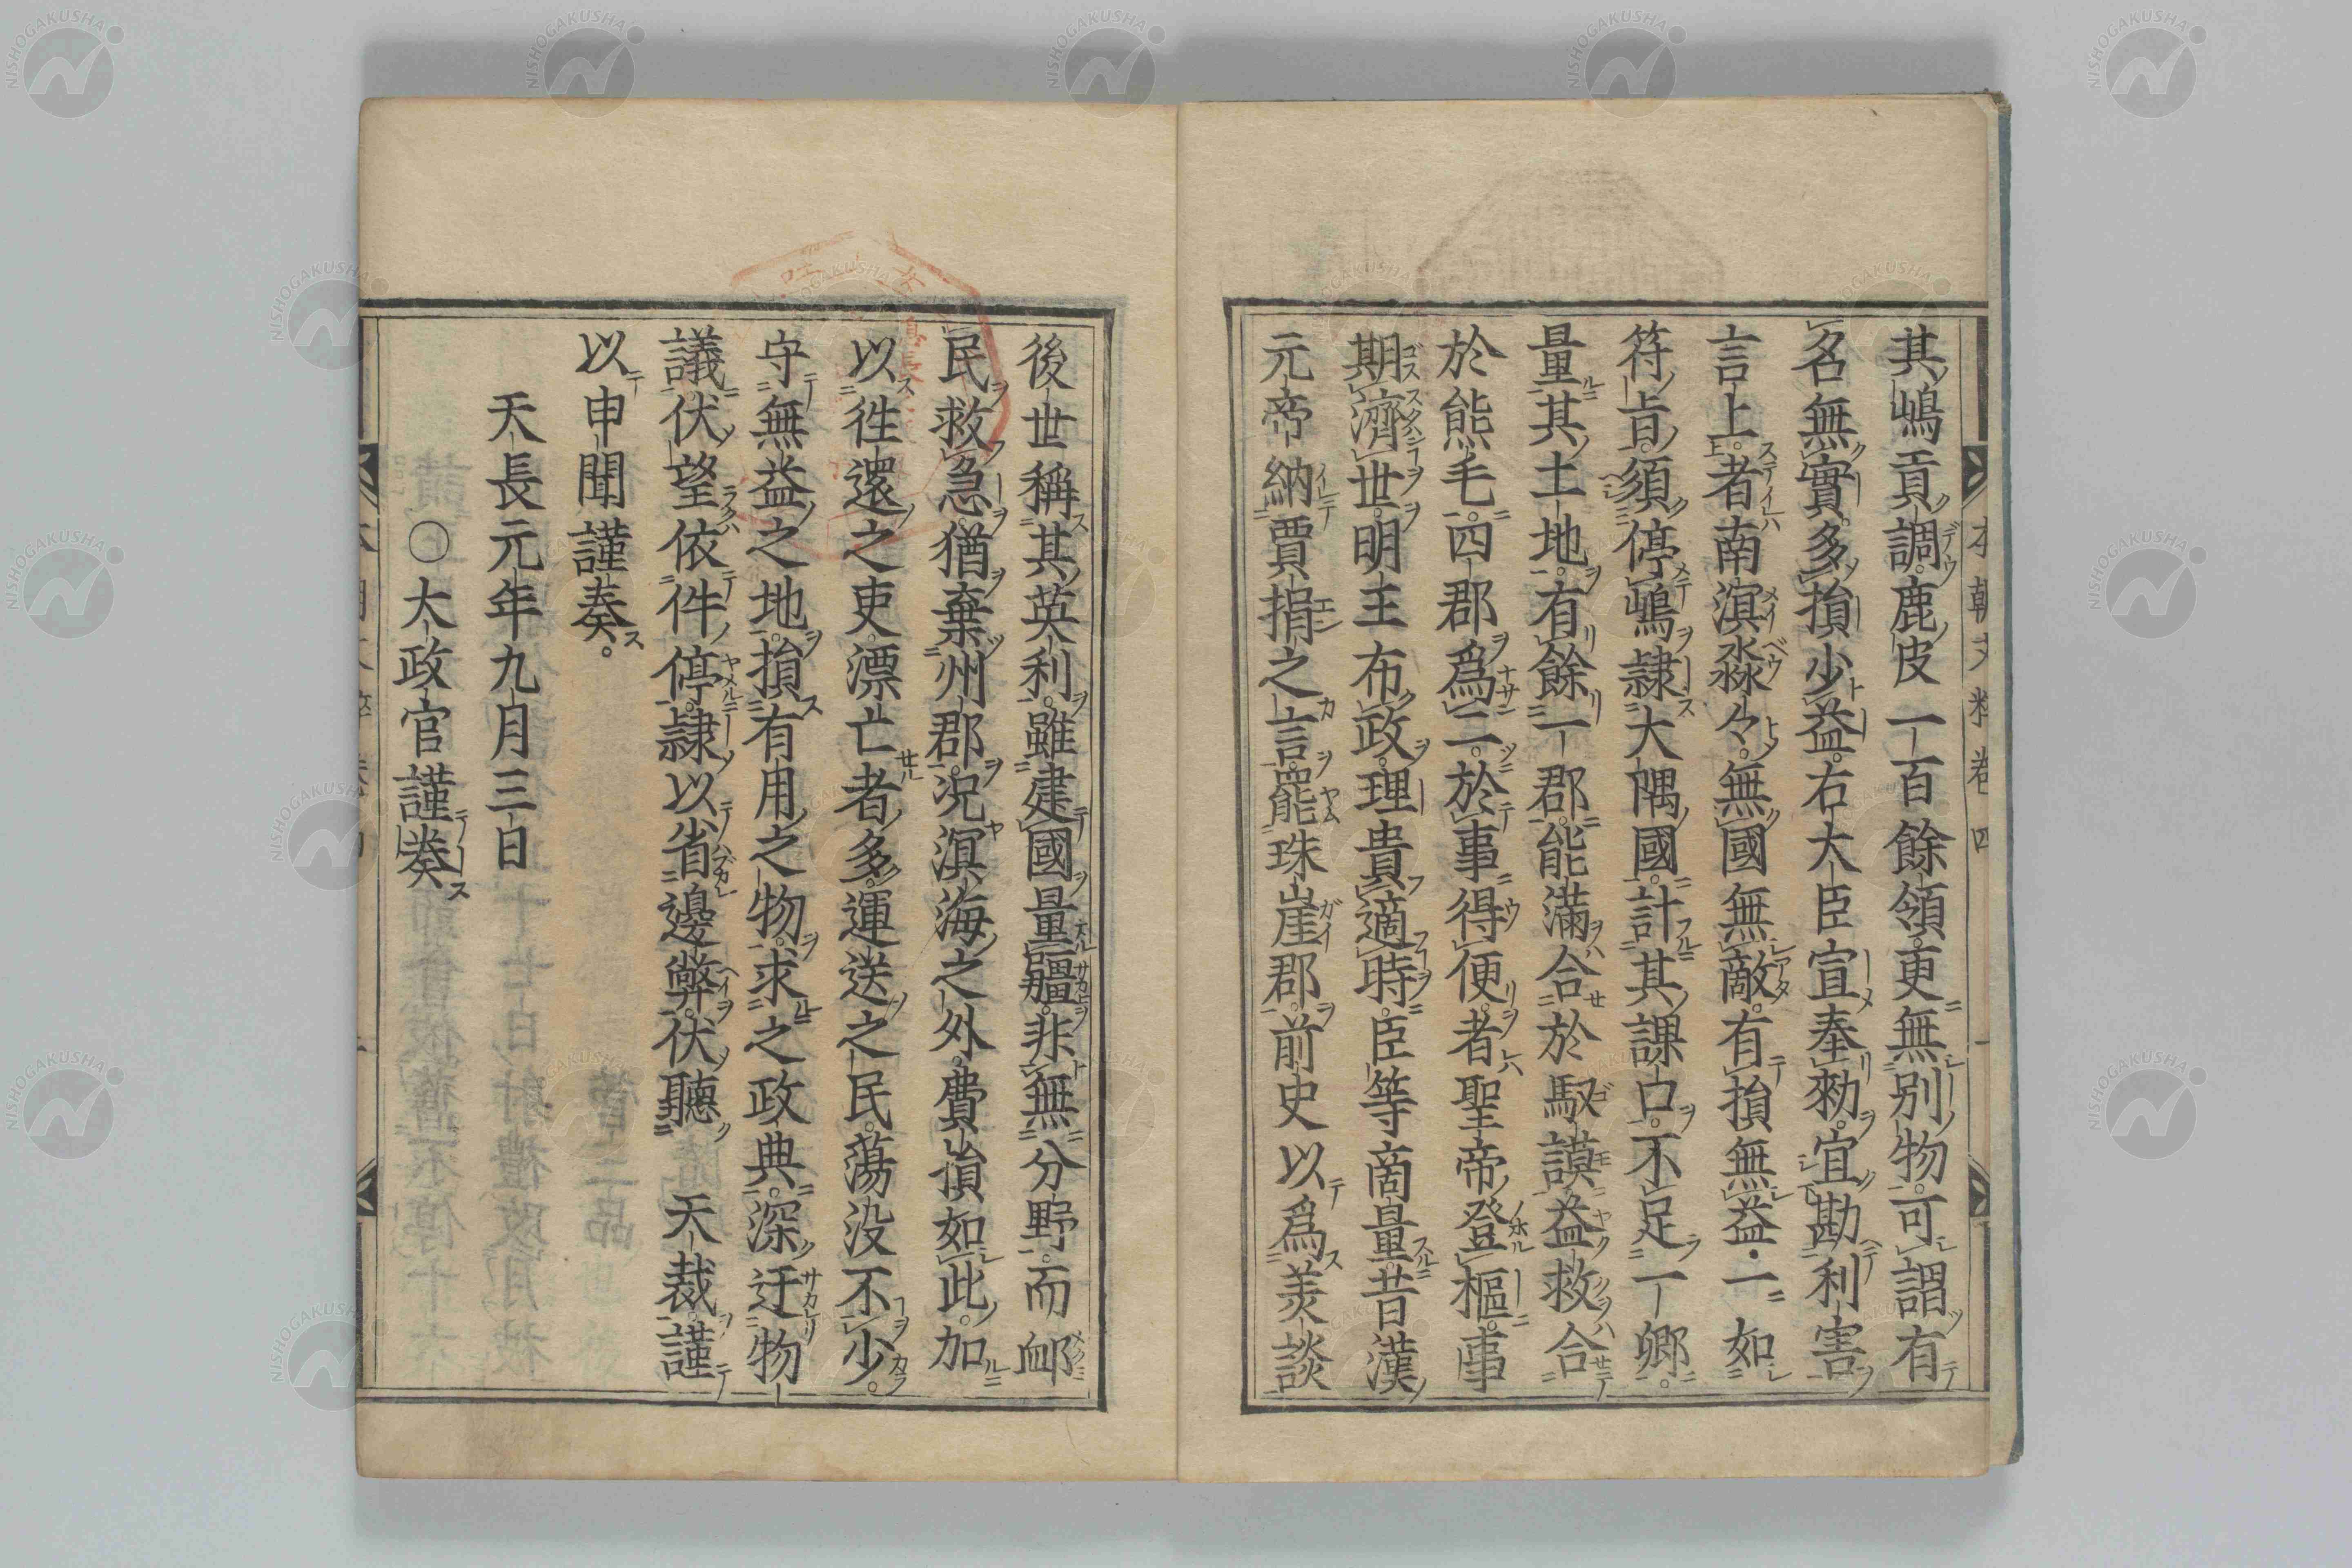 其嶋貢調鹿皮一百餘領更無別物可謂有
名無實多損少益右大臣宣奉勑宜勘利害
言上者南溟淼々無國無敵有損無益一如
符旨須停嶋隷大隅國計其課口不足一鄉
量其土地有餘一郡能滿合於馭謨益救合
於熊毛四郡爲二於事得便者聖帝登樞事
期濟世明主布政理貴適時臣等商量昔漢
元帝納賈捐之言罷珠崖郡前史以爲美談
後世稱其英利雖建國量疆非無分野而卹
民救急猶棄州郡況溟海之外費損如此加
以徃還之吏漂亡者多運送之民蕩没不少
守無益之地損有用之物求之政典深迂物
議伏望依件停隷以省邊弊伏聽 天裁謹
以申聞謹奏
天長元年九月三日
○大政官謹奏
本朝文粹卷四
NISHOGAKUSHA